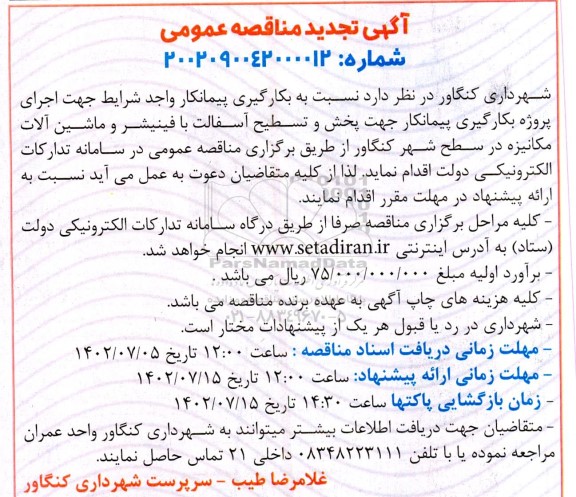 آگهی تجدید مناقصه عمومی
شماره: ۲۰۰۲۰۹۰۰۴۲۰۰۰۰۱۲
شهرداری کنگاور در نظر دارد نسبت به بکارگیری پیمانکار واجد شرایط جهت اجرای
پروژه بکارگیری پیمانکار جهت پخش و تسطیح آسفالت با فینیشر و ماشین آلات
مکانیزه در سطح شهر کنگاور از طریق برگزاری مناقصه عمومی در سامانه تدارکات
الکترونیکی دولت اقدام نماید. لذا از کلیه متقاضیان دعوت به عمل می آید نسبت به
ارائه پیشنهاد در مهلت مقرر اقدام نمایند.
- کلیه مراحل برگزاری مناقصه صرفا از طریق درگاه سامانه تدارکات الکترونیکی دولت
(ستاد) به آدرس اینترنتی www.setadiran.ir انجام خواهد شد.
- برآورد اولیه مبلغ ۷۵/۰۰۰/۰۰۰/۰۰۰ ریال می باشد .
- کلیه هزینه های چاپ آگهی به عهده برنده مناقصه می باشد.
- شهرداری در رد یا قبول هر یک از پیشنهادات مختار است.
- مهلت زمانی دریافت اسناد مناقصه : ساعت ۱۲:۰۰ تاریخ ۱۴۰۲/۰۷/۰۵
- مهلت زمانی ارائه پیشنهاد: ساعت ۱۲:۰۰ تاریخ ۱۴۰۲/۰۷/۱۵
- زمان بازگشایی پاکتها ساعت ۱۴:۳۰ تاریخ ۱۴۰۲/۰۷/۱۵
- متقاضیان جهت دریافت اطلاعات بیشتر میتوانند به شهرداری کنگاور واحد عمران
مراجعه نموده یا با تلفن ۰۸۳۴۸۲۲۳۱۱۱ داخلی ۲۱ تماس حاصل نمایند.
غلامرضا طیب - سرپرست شهرداری کنگاور
ParsNamadData
۰۲۱-۸۸۳۴۹۶۷۰-۵